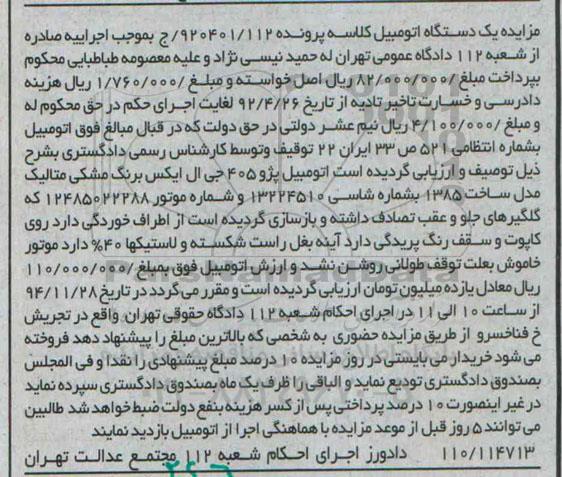 مزایده یک دستگاه اتومبیل کلاسه پرونده ۹۲۰۴۰۱/۱۱۲/ج بموجب اجراییه صادره
از شعبه ۱۱۲ دادگاه عمومی تهران له حمید نیسی نژاد و علیه معصومه طباطبایی محکوم
بپرداخت مبلغ ۸۲/۰۰۰/۰۰۰ ریال اصل خواسته و مبلغ ۱/۷۶۰/۰۰۰ ریال هزینه
دادرسی و خسارت تاخیر تادیه از تاریخ ۹۲/۴/۲۶ لغایت اجرای حکم در حق محکوم له
و مبلغ ۴/۱۰۰/۰۰۰ ریال نیم عشر دولتی در حق دولت که در قبال مبالغ فوق اتومبیل
بشماره انتظامی ۵۲۱ ص ۳۳ ایران ۲۲ توقیف وتوسط کارشناس رسمی دادگستری بشرح
ذیل توصیف و ارزیابی گردیده است اتومبیل پژو ۴۰۵ جی ال ایکس برنگ مشکی متالیک
مدل ساخت ۱۳۸۵ بشماره شاسی ۱۳۲۲۴۵۱۰ و شماره موتور ۱۲۴۸۵۰۲۲۲۸۸ که
گلگیرهای جلو و عقب تصادف داشته و بازسازی گردیده است از اطراف خوردگی دارد روی
کاپوت و سقف رنگ پریدگی دارد آینه بغل راست شکسته و لاستیکها ۴۰% دارد موتور
خاموش بعلت توقف طولانی روشن نشد و ارزش اتومبیل فوق بمبلغ ۱۱۰/۰۰۰/۰۰۰
ریال معادل یازده میلیون تومان ارزیابی گردیده است و مقرر می گردد در تاریخ ۹۴/۱۱/۲۸
از ساعت ۱۰ الی ۱۱ در اجرای احکام شعبه ۱۱۲ دادگاه حقوقی تهران واقع در تجریش
خ فناخسرو از طریق مزایده حضوری به شخصی که بالاترین مبلغ را پیشنهاد دهد فروخته
می شود خریدار می بایستی در روز مزایده ۱۰ درصد مبلغ پیشنهادی را نقدا و فی المجلس
بصندوق دادگستری تودیع نماید و الباقی را ظرف یک ماه بصندوق دادگستری سپرده نماید
در غیر اینصورت ۱۰ درصد پرداختی پس از کسر هزینه بنفع دولت ضبط خواهد شد طالبین
می توانند ۵ روز قبل از موعد مزایده با هماهنگی اجرا از اتومبیل بازدید نمایند
۱۱۰/۱۱۴۷۱۳ دادورز اجرای احکام شعبه ۱۱۲ مجتمع عدالت تهران